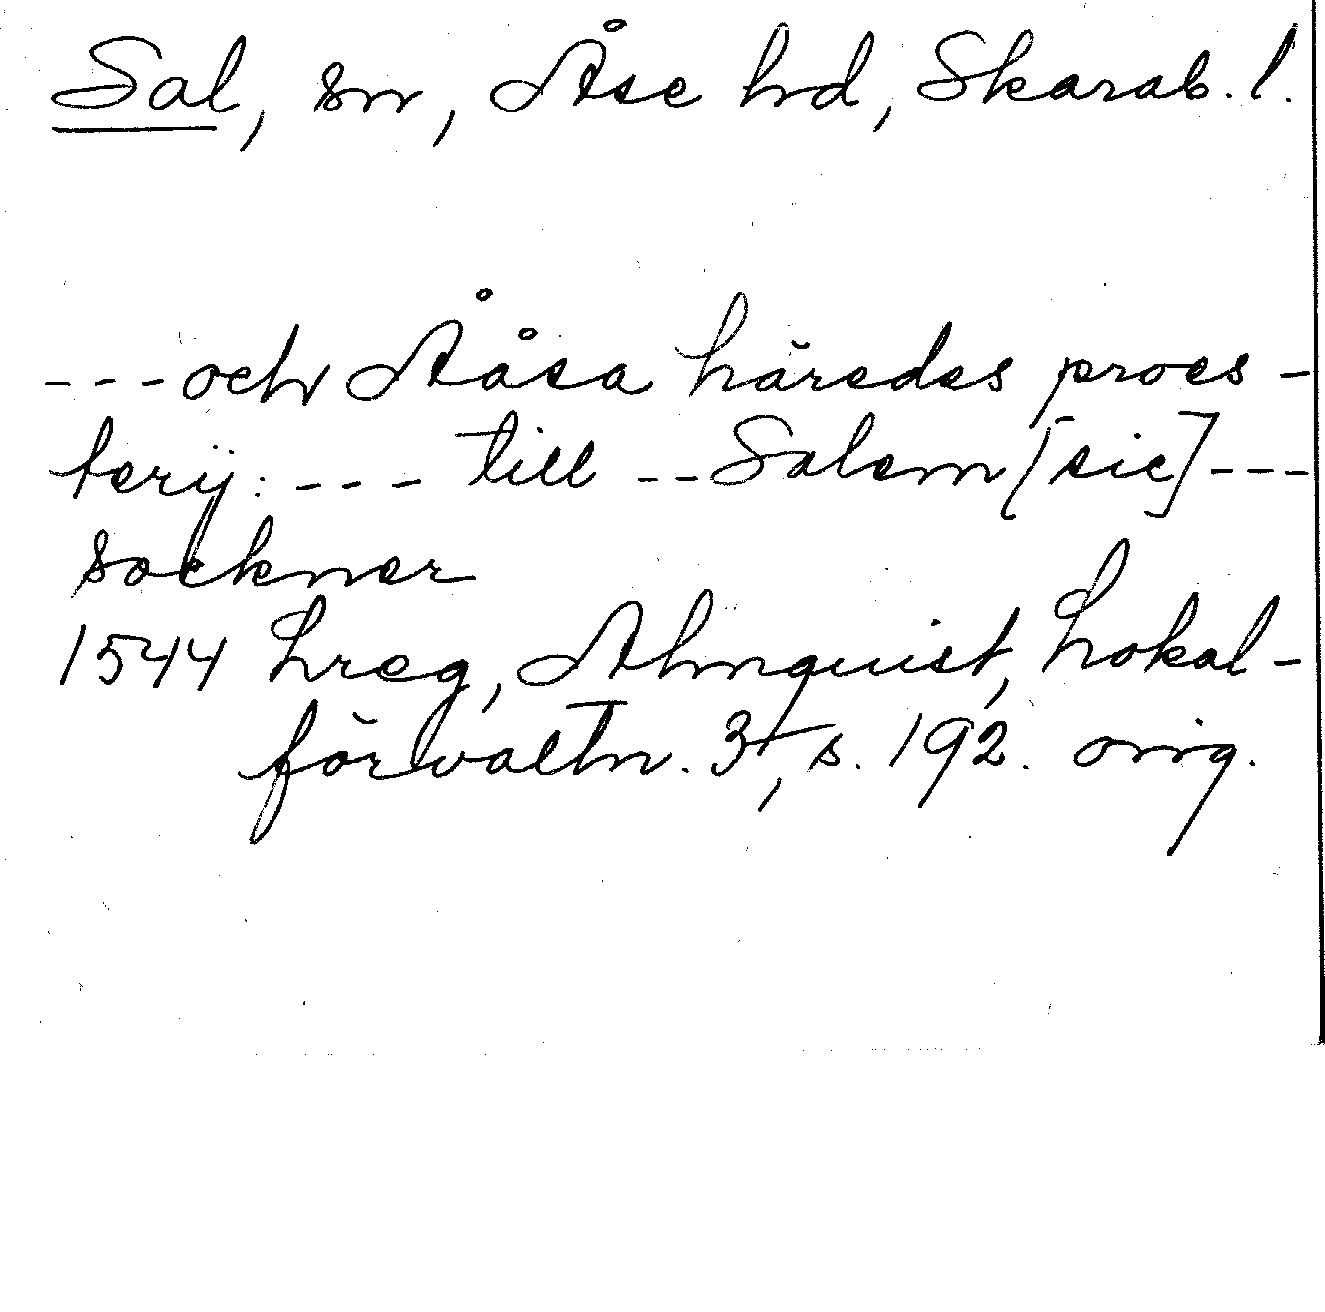 Sal, sn, Åse hd, Skarab. l.
---och Ååsa häredes proes-
terij: --- till --Salem [sic]---
sockner
1544 Lreg, Almquist, Lokal-
förvaltn. 3, s. 192. orig.